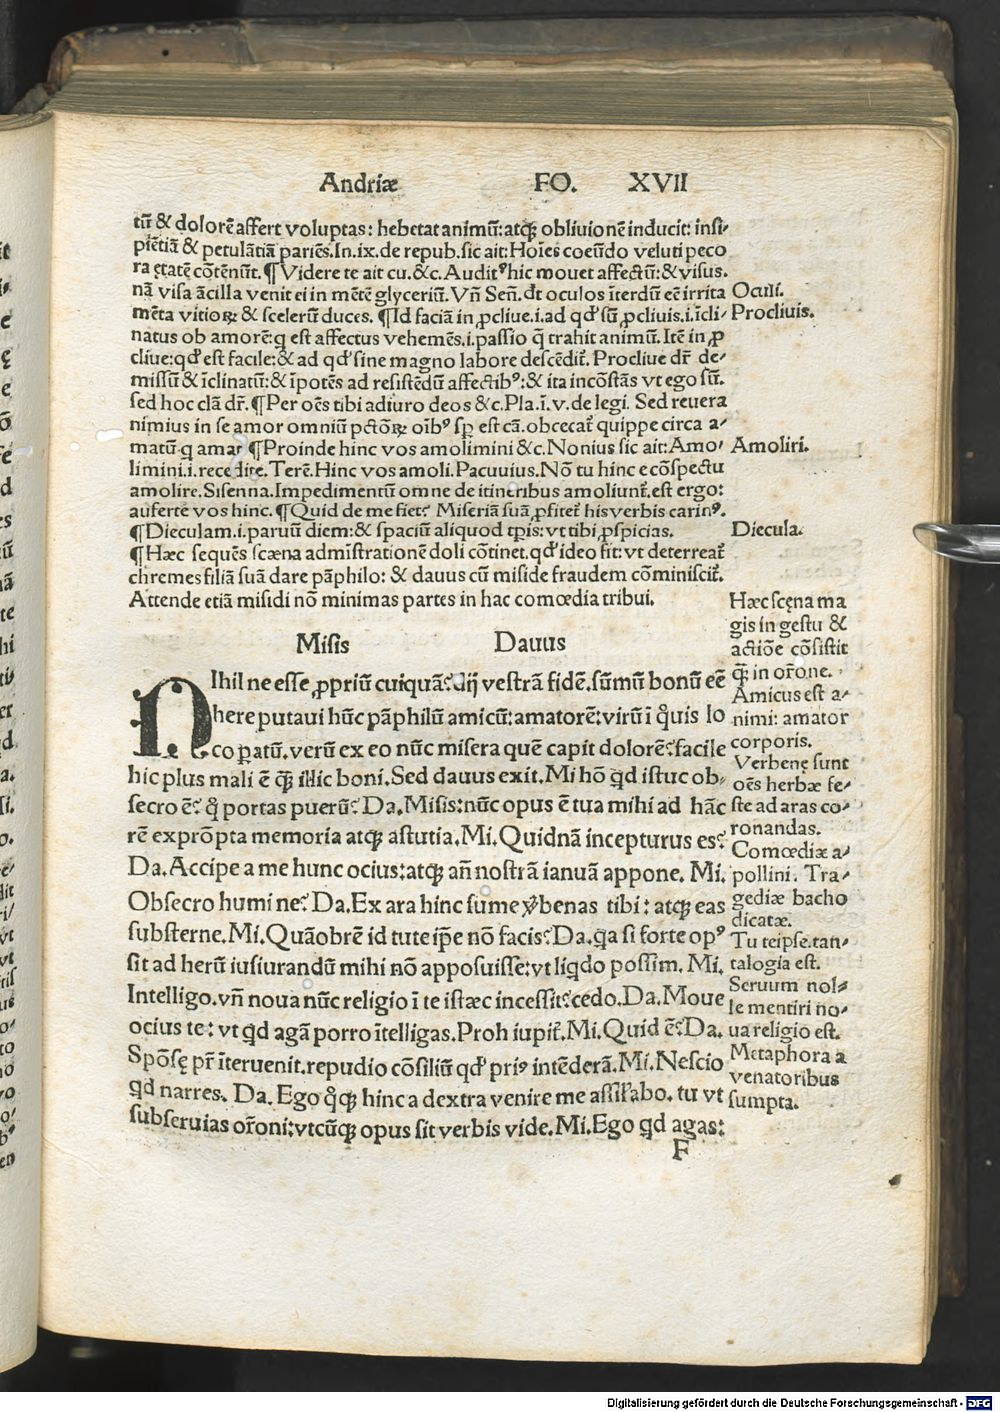 Andriæ FO. XVII
tū & dolorē affert voluptas: hebetat animū: atqꝫ obliuionē inducit: insi⸗
piētiā & petulātiā pariēs. In .ix. de repub. sic ait: Hoīes coeūdo veluti peco
ra ętatē cōtēnūt. ¶ Videre te ait cu. &c. Auditꝰ hic mouet affectū: & visus.
nā visa ācilla venit ei in mētē glyceriū. Vn̄ Sen̄. dt oculos īterdū eē irrita
mēta vitioꝝ & scelerū duces. ¶ Id faciā in ꝓcliue .i. ad qd̓ sū ꝓcliuis .i. īcli⸗
natus ob amorē: q est affectus vehemēs .i. passio q̄ trahit animū. Itē in ꝓ
cliue: qd̓ est facile: & ad qd̓ sine magno labore descēdit̄. Procliue dr̄ de⸗
missū & īclinatū: & īpotēs ad resistēdū affectibꝰ: & ita incōstās vt ego sū.
sed hoc clā dr̄. ¶ Per oēs tibi adiuro deos &c. Pla. ī .v. de legi. Sed reuera
nimius in se amor omniū pctōꝝ oībꝰ sp̄ est cā. obcecat̄ quippe circa a⸗
matū q amat ¶ Proinde hinc vos amolimini &c. Nonius sic ait: Amo⸗
limini .i. recedite. Terē. Hinc vos amoli. Pacuuius. Nō tu hinc e cōspectu
amolire. Sisenna. Impedimentū omne de itineribus amoliunt̄. est ergo:
auferte vos hinc. ¶ Quid de me fiet? Miseriā suā ꝓfitet̄ his verbis carinꝰ.
¶ Dieculam .i. paruū diem: & spaciū aliquod tp̄is: vt tibi ꝓspicias.
¶ Hæc sequēs scæna admīstrationē doli cōtinet. qd̓ ideo fit: vt deterreat̄
chremes filiā suā dare pāphilo: & dauus cū miside fraudem cōminiscit̄.
Attende etiā misidi nō minimas partes in hac comœdia tribui.
Oculi.
Procliuis.
Amoliri.
Diecula.
Misis Dauus
NIhil ne esse ꝓpriū cuiquā? dij vestrā fidē. sūmū bonū eē
here putaui hūc pāphilū amicū: amatorē: virū i q̊uis lo
co paratū. verū ex eo nūc misera quē capit dolorē? facile
hic plus mali ē qꝫ illic boni. Sed dauus exit. Mi hō qd istuc ob⸗
secro ē? q̊ portas puerū? Da. Misis: nūc opus ē tua mihi ad hāc
rē exprōpta memoria atqꝫ astutia. Mi. Quidnā incepturus es?
Da. Accipe a me hunc ocius: atqꝫ an̄ nostrā ianuā appone. Mi.
Obsecro humi ne? Da. Ex ara hinc sume v̓benas tibi: atqꝫ eas
substerne. Mi. Quāobrē id tute ip̄e nō facis? Da. qa si forte opꝰ
sit ad herū iusiurandū mihi nō apposuisse: vt liqdo possim. Mi.
Intelligo. vn̄ noua nūc religio ī te istæc incessit? cedo. Da. Moue
ocius te: vt qd agā porro ītelligas. Proh iupit̄. Mi. Quid ē? Da.
Spōsę pr̄ īteruenit. repudio cōsiliū qd̓ priꝰ intēderā. Mi. Nescio
qd narres. Da. Ego q̊qꝫ hinc a dextra venire me assil̓abo. tu vt
subseruias or̄oni: vtcūqꝫ opus sit verbis vide. Mi. Ego qd agas:
F
Hæc scęna ma
gis in gestu &
actiōe cōsistit
qꝫ in or̄one.
Amicus est a⸗
nimi: amator
corporis.
Verbenę sunt
oēs herbæ fe⸗
ste ad aras co⸗
ronandas.
Comœdiæ a⸗
pollini. Tra⸗
gediæ bacho
dicatæ.
Tu teipse. tau⸗
talogia est.
Seruum nol⸗
le mentiri no⸗
ua religio est.
Metaphora a
venatoribus
sumpta.
Digitalisierung gefördert durch die Deutsche Forschungsgemeinschaft - DFG